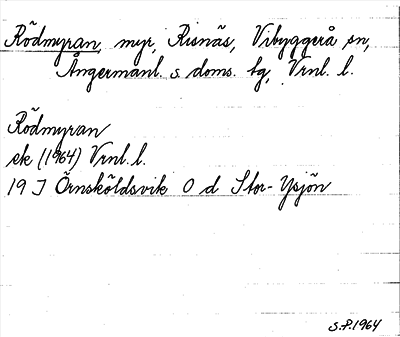 Rödmyran, myr, Risnäs, Vibyggerå sn,
Ångermanl. s. doms. tg, Vrnl. l.
Rödmyran
ek (1964) Vrnl. l.
19 J Örnsköldsvik O d Stor-Ysjön
S.P. 1964